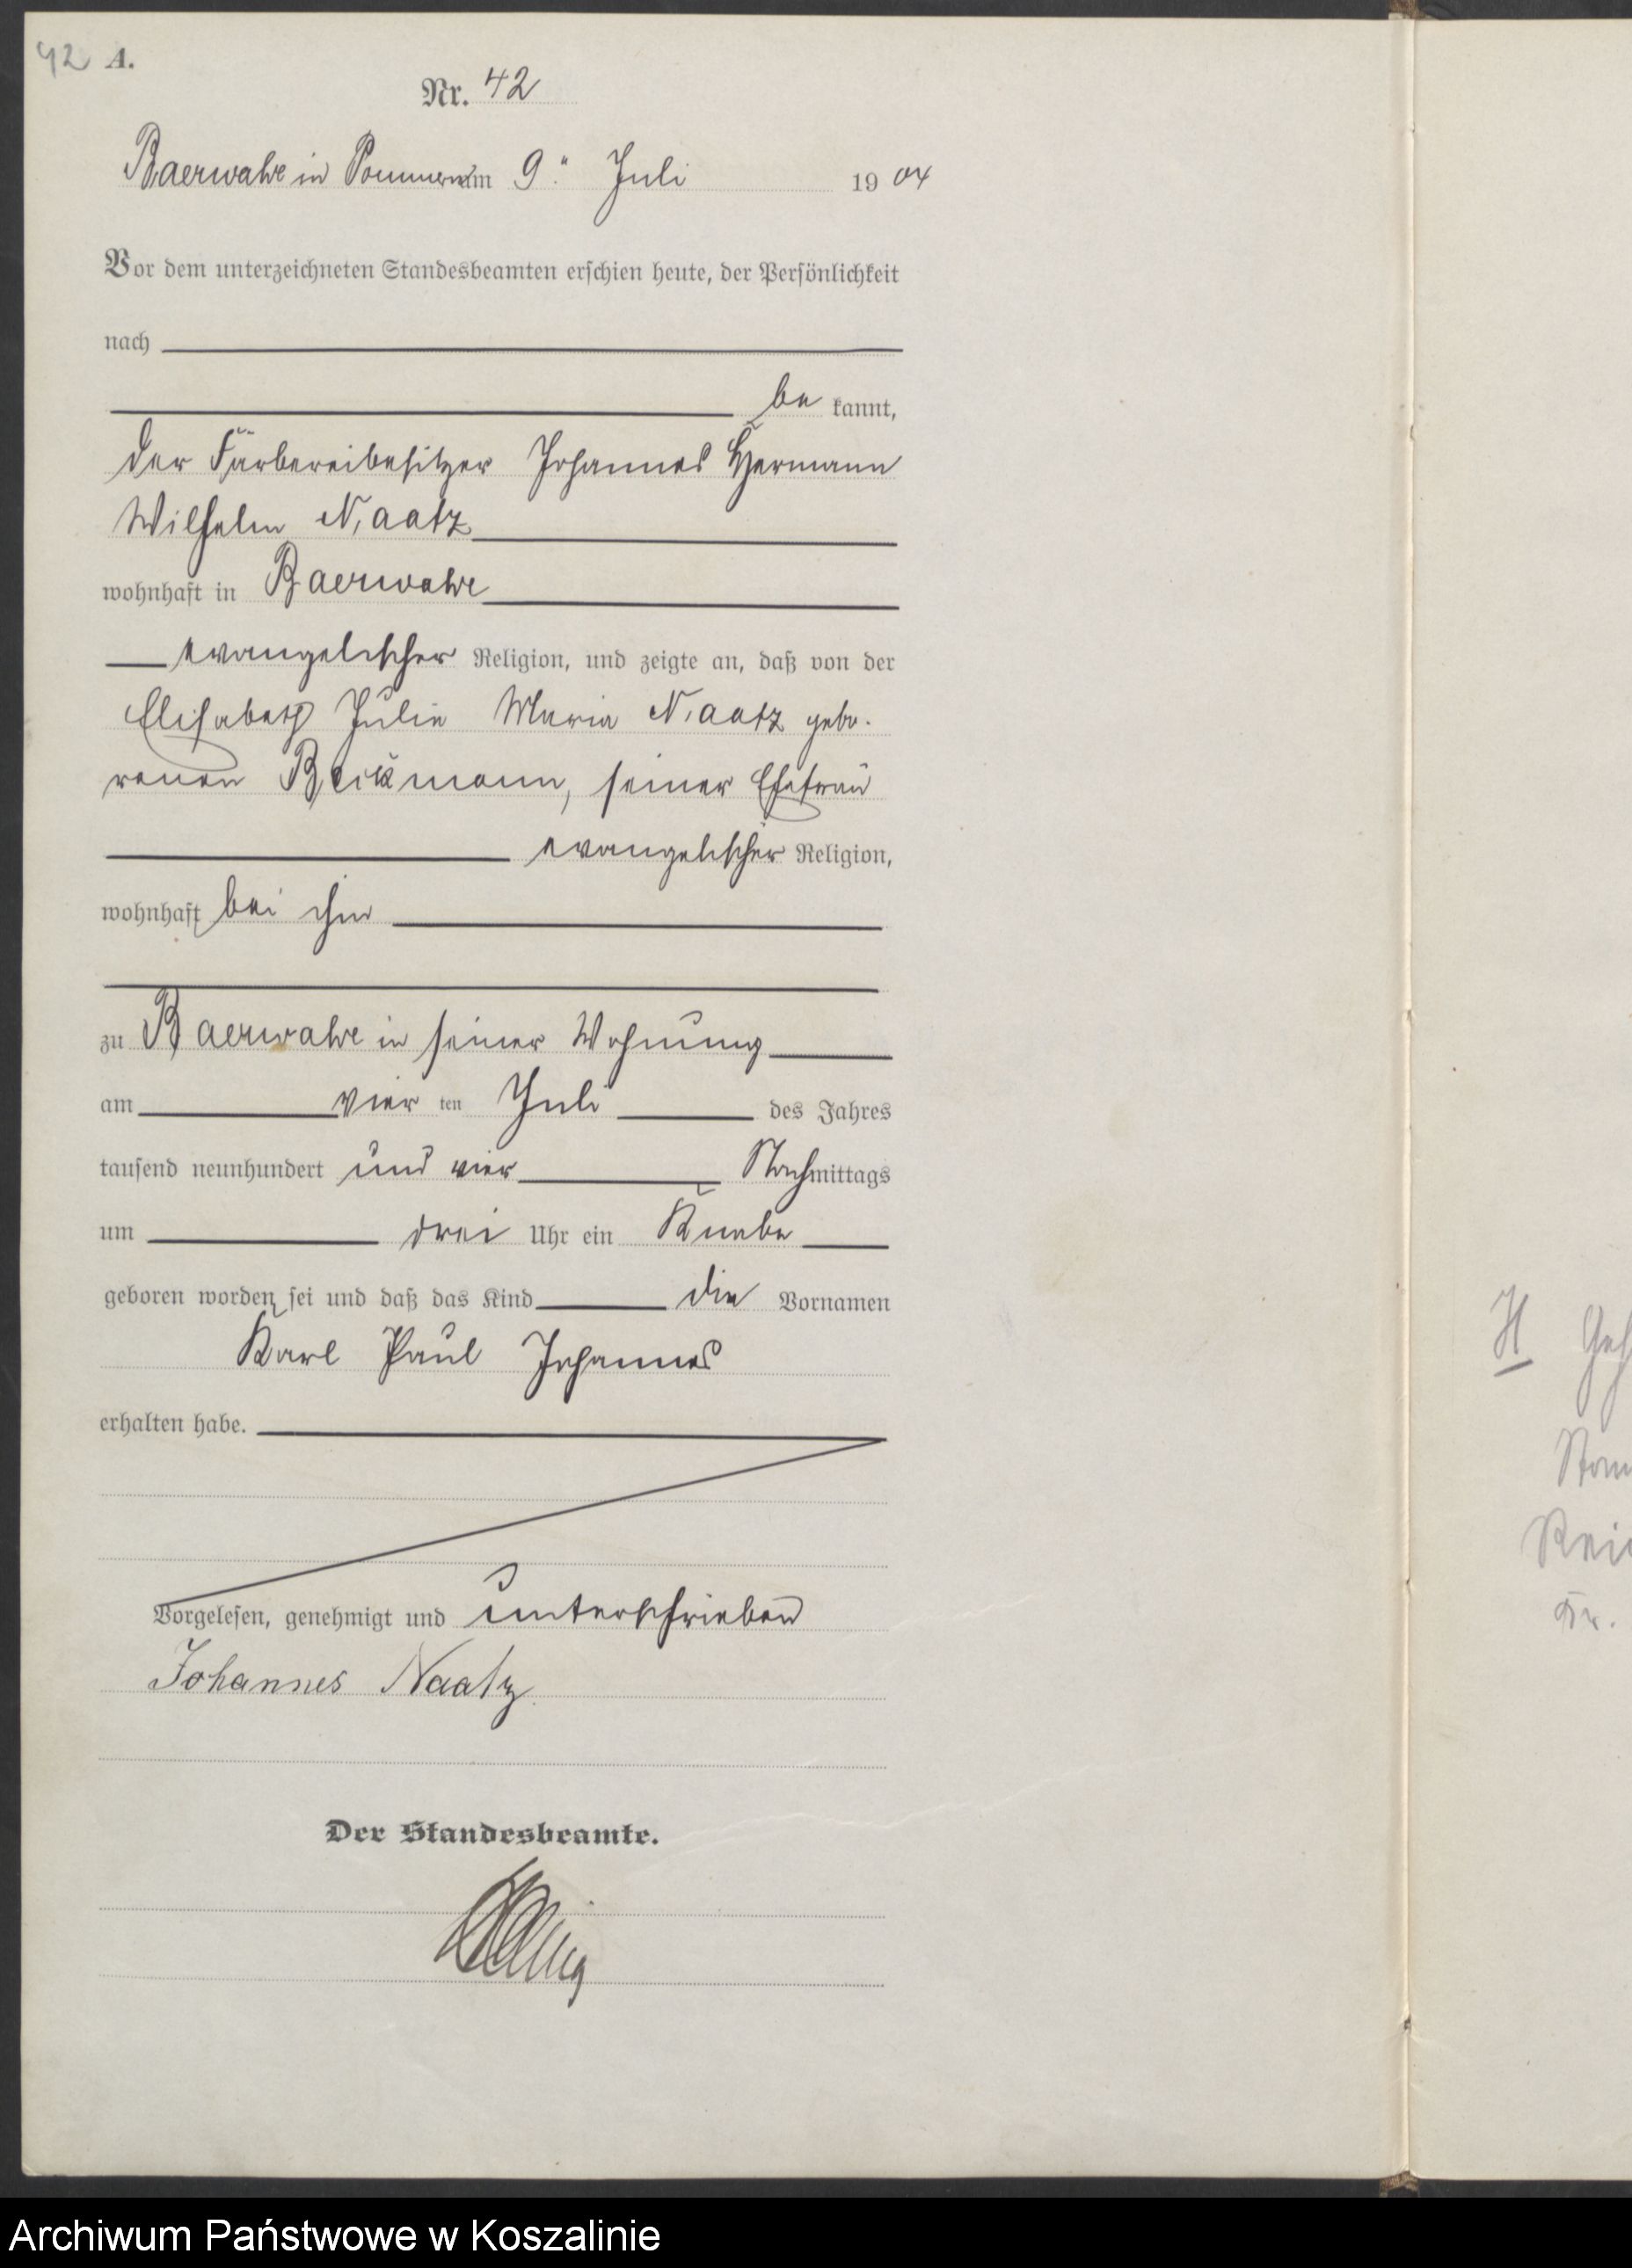 42 A.
Nr. 42
Baerwalde in Pommern am 9. Juli 1904
Vor dem unterzeichneten Standesbeamten erschien heute, der Persönlichkeit
nach
be kannt,
der Färbereibesitzer Johannes Hermann
Wilhelm Naatz
wohnhaft in Baerwalde
evangelischer Religion, und zeigte an, daß von der
Elisabeth Julie Maria Naatz gebo-
renen Beickmann, seiner Ehefrau
evangelischer Religion,
wohnhaft bei ihm
zu Baerwalde in seiner Wohnung
am vier ten Juli des Jahres
tausend neunhundert und vier Nachmittags
um drei Uhr ein Knabe
geboren worden sei und daß das Kind die Vornamen
Karl Paul Johannes
erhalten habe.
Vorgelesen, genehmigt und unterschrieben
Johannes Naatz
Der Standesbeamte.
H
Kr.
Archiwum Państwowe w Koszalinie